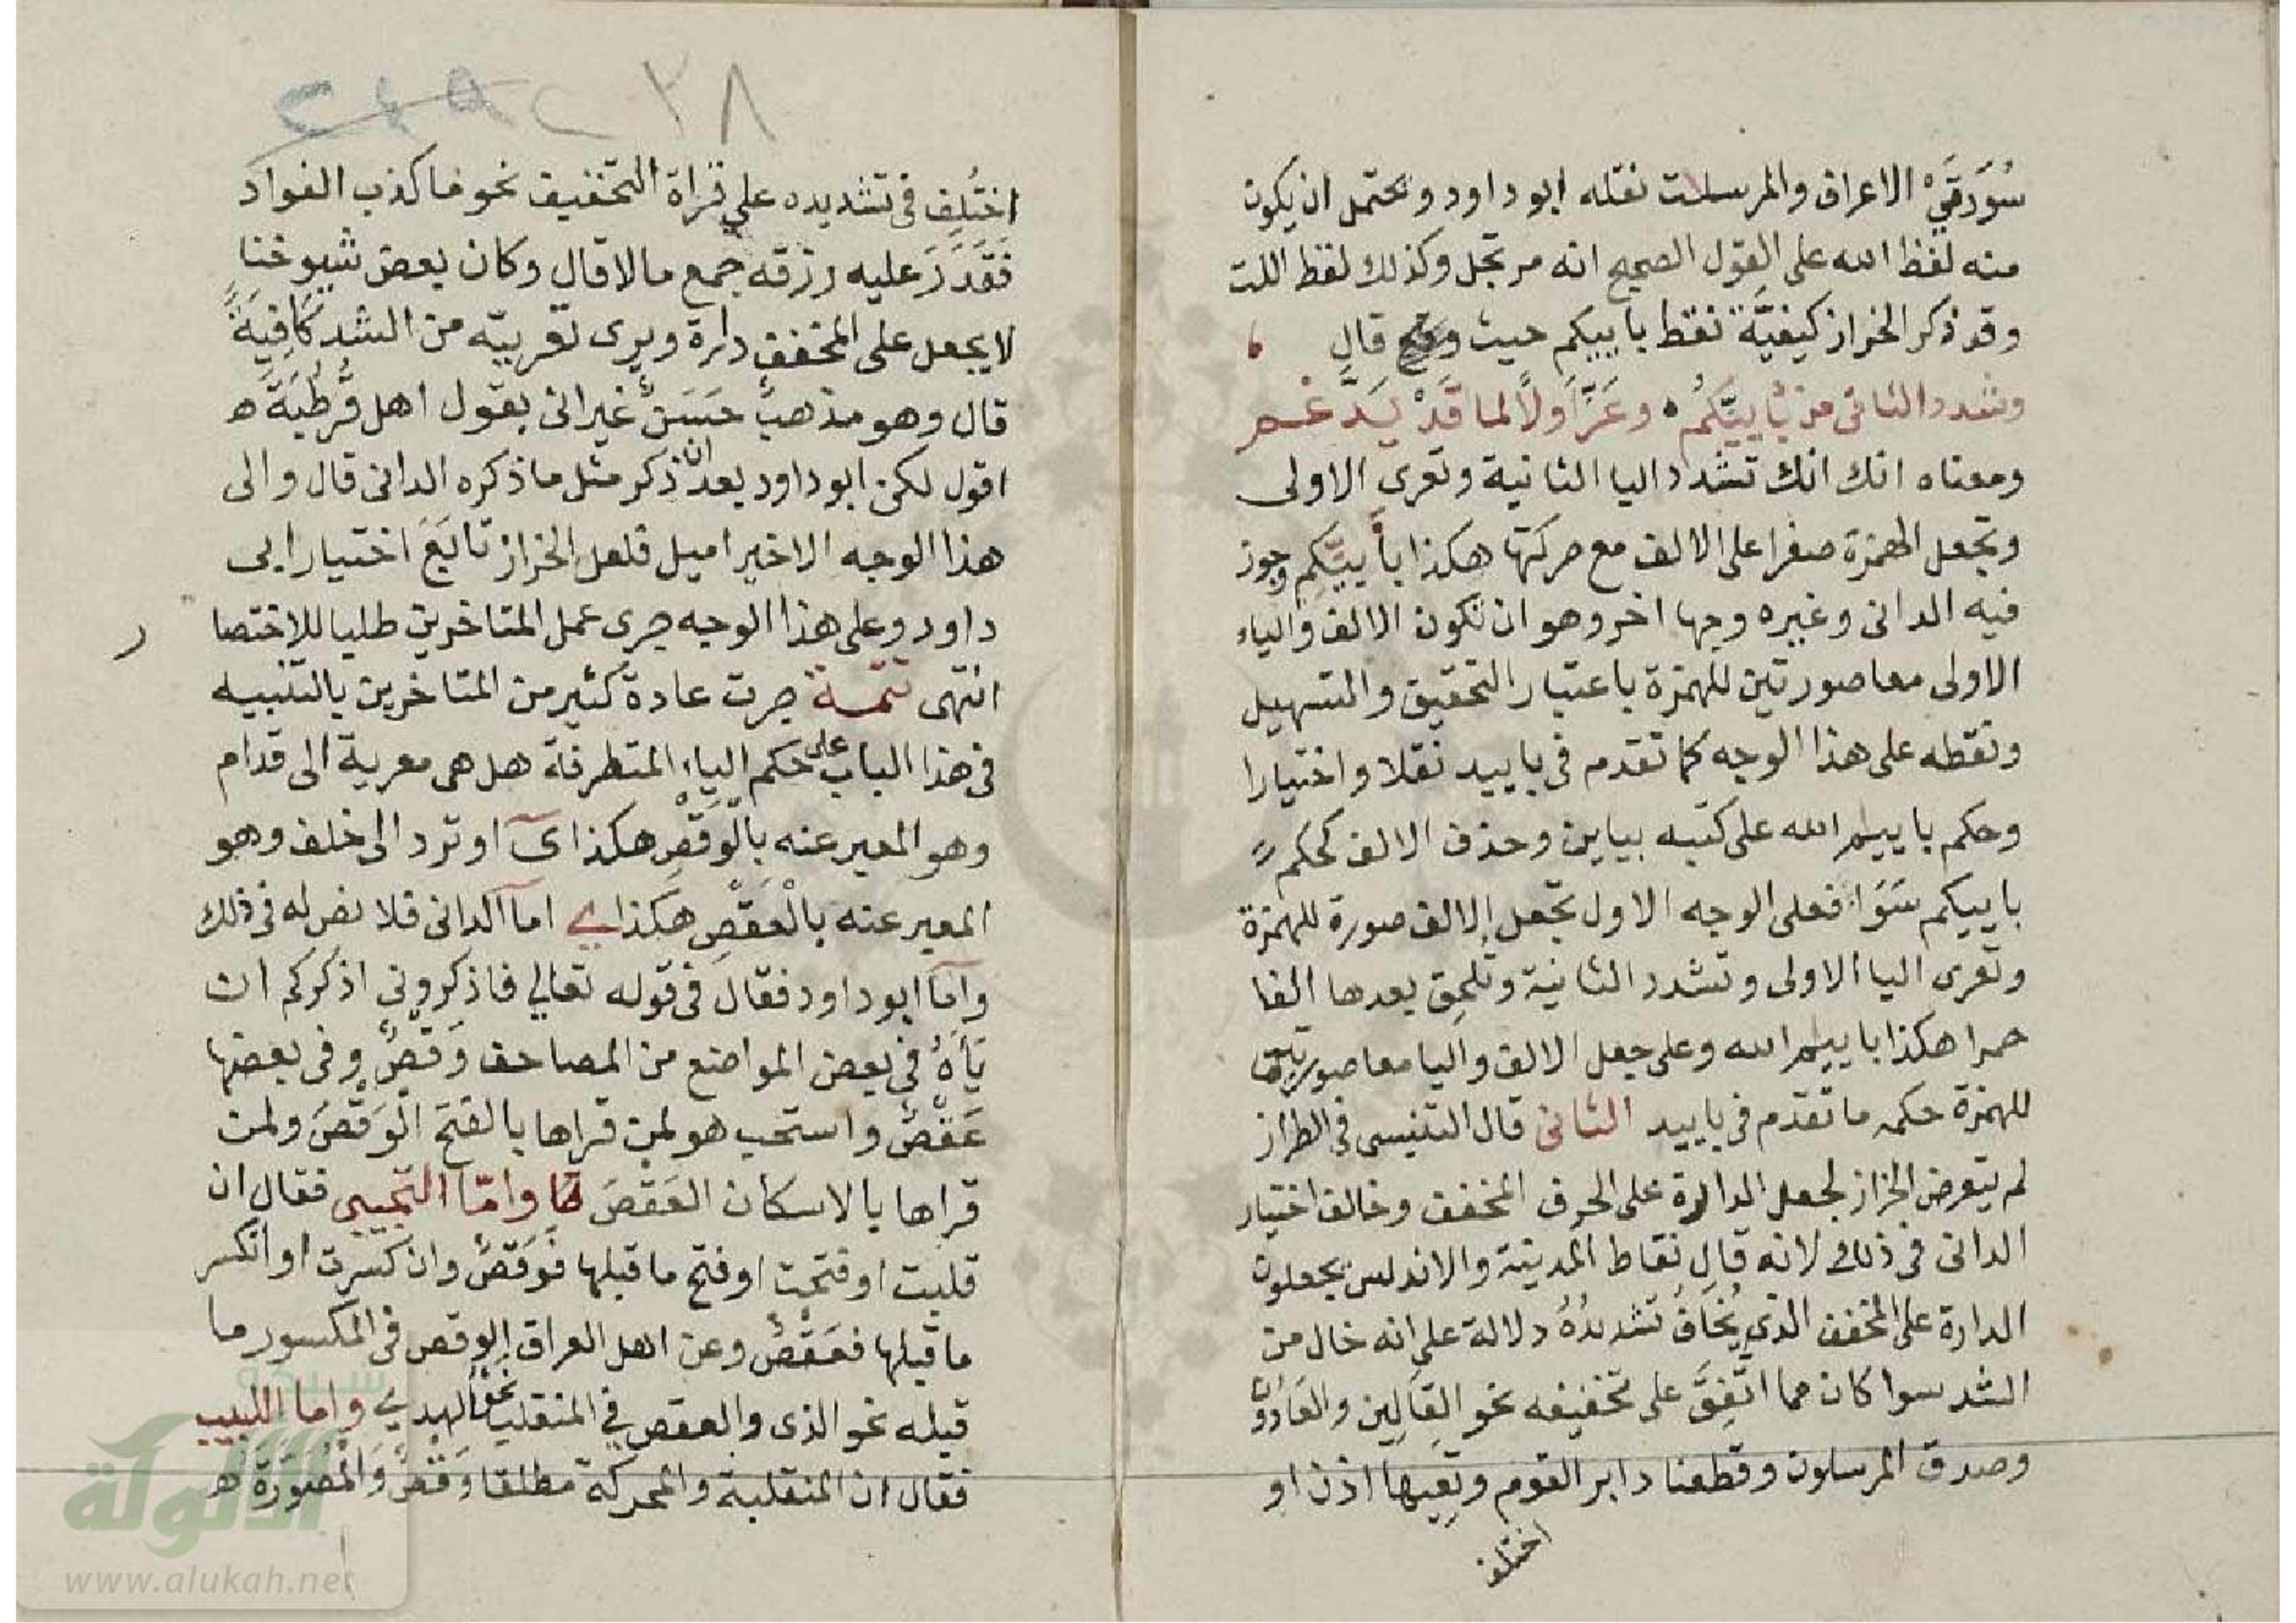 سُوَرَتَيْ الاعراف والمرسلات نقله ابو داود ويحتمل ان يكون
منه لفظ الله على القول الصحيح انه مرتجل وكذلك لفظ اللت
وقد ذكر الخراز كيفيَّة نقط بأييكم حيث وقع قال
وشدد الثانى من بأييّكم وعَرِّ اَولًا لما قَدْ يُدَّغم
ومعناه انك انك تشدد اليا الثانية وتعرى الاولى
وتجعل الهمزة صفرا على الالف مع حركتها هكذا بأييّكم وجوز
فيه الدانى وغيره وجها اخر وهو ان تكون الالف والياء
الاولى معا صورتين للهمزة باعتبار التحقيق والتسهيل
ونقطه على هذا الوجه كما تقدم فى باييد نقلا واختيارا
وحكم باييم الله على كتبه بياين وحذف الالف كحكم
باييكم سَوَا فعلى الوجه الاول تجعل الالف صورة للهمزة
وتعرى اليا الاولى وتشدد الثانية وتلحق بعدها الفا
حمرا هكذا باييم الله وعلى جعل الالف واليا معا صورتين
للهمزة حكمه ما تقدم فى باييد الثانى قال التنسى فى الطراز
لم يتعرض الخراز لجعل الدارة على الحرف المخفف وخالف اختيار
الدانى فى ذلك لانه قال نقاط المدينة والاندلس يجعلون
الدارة على المخفف الذي يُخَافُ تشديدُهُ دلالة على انه خال من
الشد سوا كان مما اتُّفِقَ على تخفيفه نحو القالين والعَادُونَ
وصدق المرسلون وقطعنا دابر القوم وتَعِيها اذن او
اختلف
٢٨
اختُلِف فى تشديده على قراة التخفيف نحو ما كذب الفواد
فَقَدَرَ عليه رزقه جمع مالا قال وكان بعض شيوخنا
لا يجعل على المخفف دارة ويرى تعريته من الشد كَافِيَةً
قال وهو مذهبٌ حَسَنٌ غير انى بقول اهل قُرْطُبَةَ ه
اقول لكن ابو داود بعد ان ذكر مثل ما ذكره الدانى قال والى
هذا الوجه الاخير اميل فلعل الخراز تابَعَ اختيار ابى
داود وعلى هذا الوجه جرى عمل المتاخرين طلبا للاختصا ر
انتهى تتمة جرت عادة كثير من المتاخرين بالتنبيه
فى هذا الباب على حكم الياء المتطرفة هل هى معرية الى قدام
وهو المعبر عنه بالْوَقْصِ هكذا ى او ترد الى خلف وهو
المعبر عنه بالْعَقْصِ هكذا ے اما الدانى فلا نص له فى ذلك
واما ابو داود فقال فى قوله تعالي فاذكروني اذكركم ان
يَأهُ فى بعض المواضع من المصاحف وَقْصٌ وفى بعضها
عَقْصٌ واستحب هو لمن قراها بالفتح الْوَقْصَ ولمن
قراها بالاسكان العَقْصَ واما التجيبى فقال ان
قلبت او فتحت او فتح ما قبلها فوَقْصٌ وان كسرت او انكسر
ما قبلها فعَقْصٌ وعن اهل العراق الوقص فى المكسور ما
قبله نحو الذى والعقص في المنقلب نحو الهدي واما اللبيب
فقال ان المنقلبة والمحركة مطلقا وَقْصٌ وَالْمُصَوَّرَةَ ه
شبكة
الألوكة
www.alukah.net